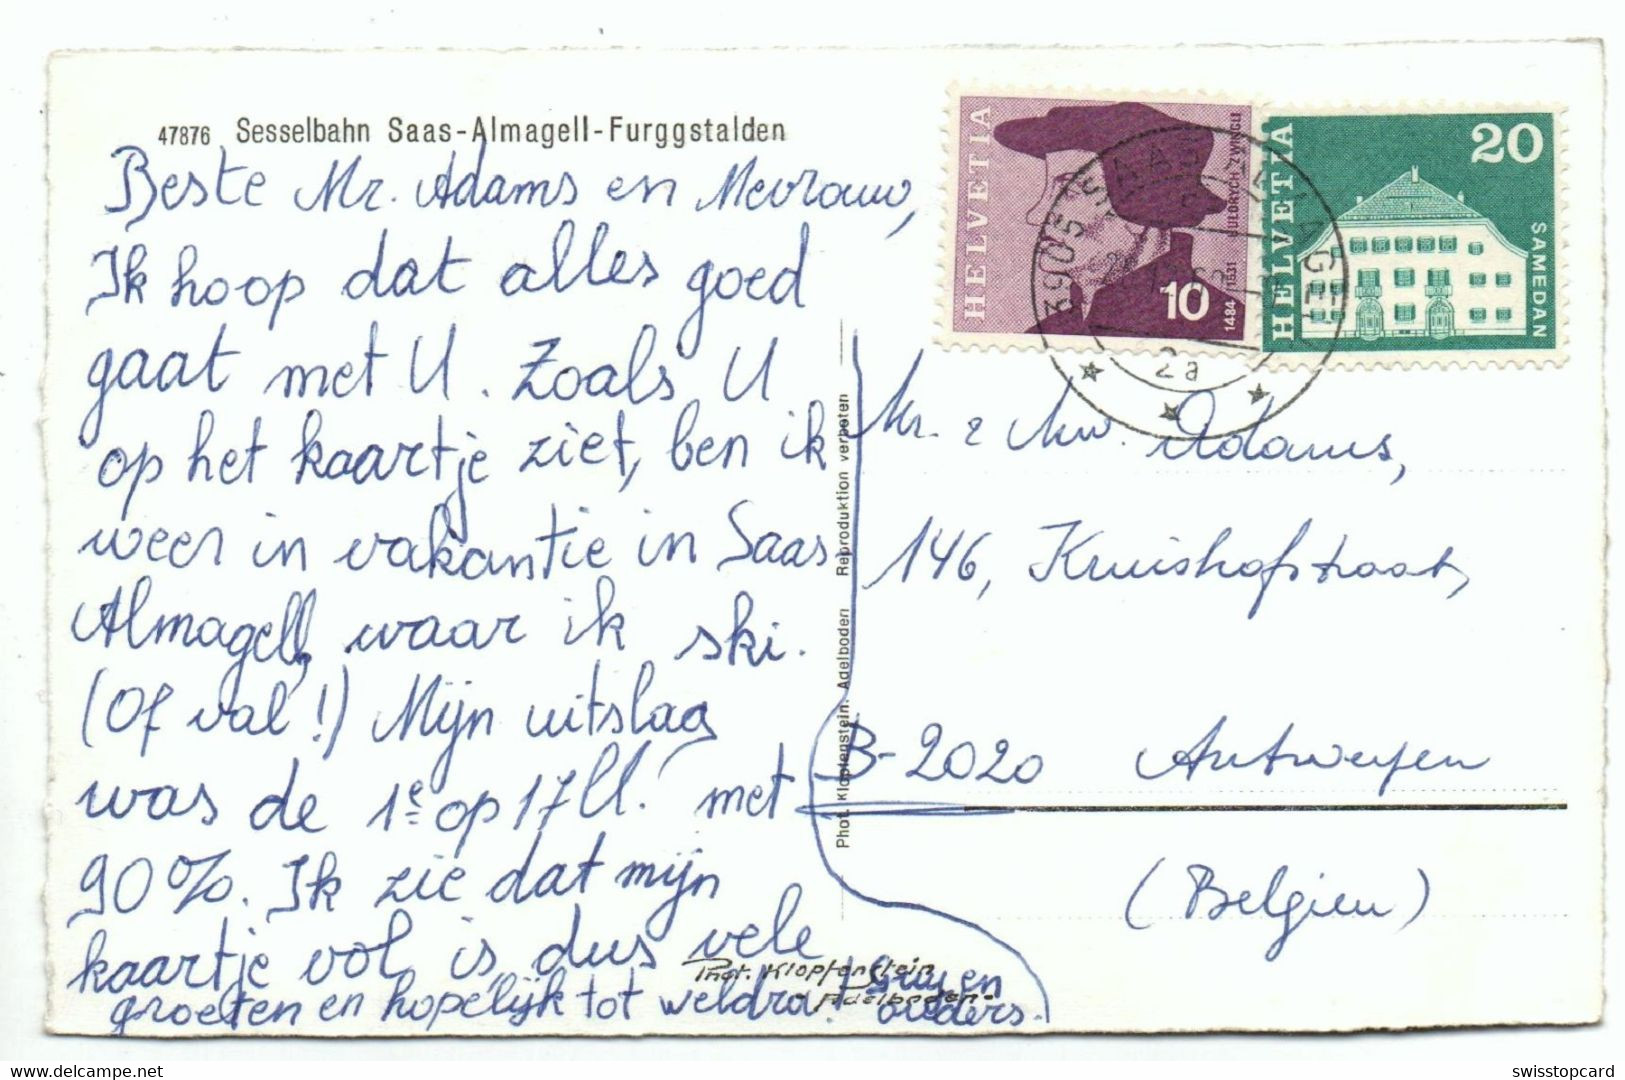 47876 Sesselbahn Saas-Almagell-Furggstalden
Beste Mr. Adams en Mevrouw,
Ik hoop dat alles goed
gaat met U. Zoals U
op het kaartje ziet, ben ik
weer in vakantie in Saas
Almagell, waar ik ski.
(Of val!) Mijn uitslag
was de 1e op 17 ll. met
90%. Ik zie dat mijn
kaartje vol is dus vele
groeten en hopelijk tot weldra! Guy en
ouders.
Phot. Klopfenstein
Adelboden
Phot. Klopfenstein, Adelboden Reproduktion verboten
HELVETIA
10
1484 1531 HULDRYCH ZWINGLI
HELVETIA
20
SAMEDAN
3905 SAAS ALMAGELL
2a
Mr. & Mw. Adams,
146, Kruishofstraat,
B-2020 Antwerpen
(Belgien)
swisstopcard